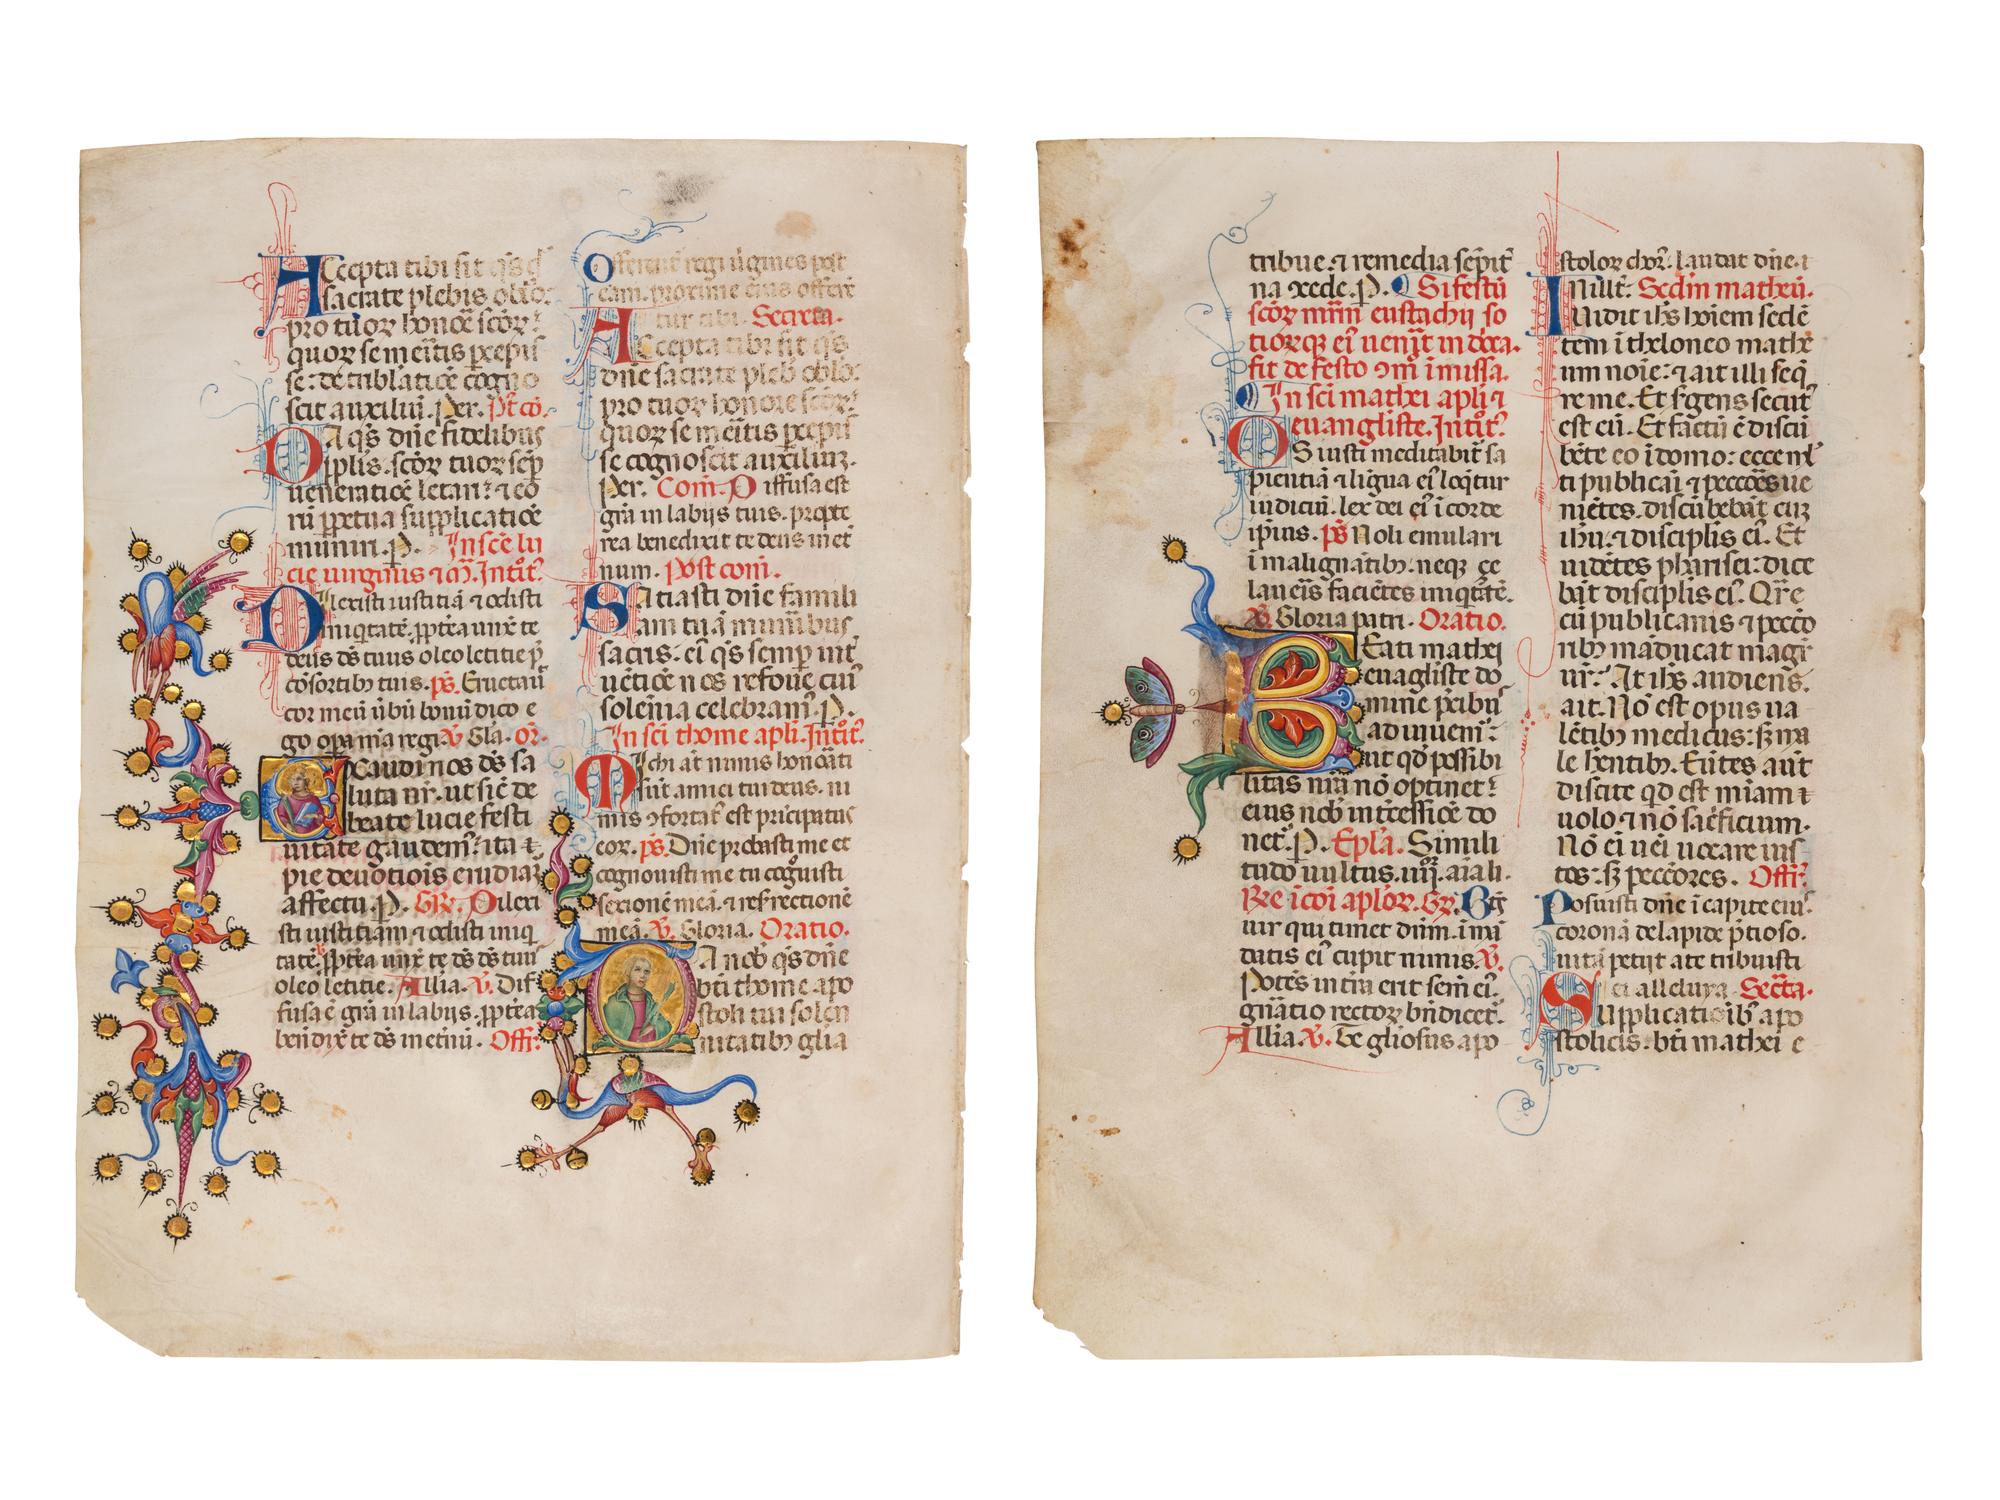 Accepta tibi sit qs d
sacrate plebis oblo:
pro tuoꝝ honoꝛe scoꝝ:
quoꝝ se meritis pcepis
se: de tribulatiōe cogno
scit auxiliū. Per. Pt cō.
Da qs dn̄e fidelibus
pplis scoꝝ tuoꝝ sēp
ueneratiōe letari: ⁊ eo
rū ppetua supplicatiōe
muniri. P. In scē lu
cie uirginis ⁊ m̄. Intoit.
Dilexisti iustitiā ⁊ odisti
iniqtatē. pptea unx̄ te
deus ds̄ tuus oleo letitie p̄
cōsortibꝫ tuis. ps. Eructau
cor meū ūbū bonū dico e
go opa mea regi. V̄ Gla. or.
Exaudi nos ds̄ sa
lutaris nr̄. ut sic̄ de
beate lucie festi
uitate gaudem: ita ⁊
pie deuotiōis erudiaꝝ
affectu P. GR. Dilexi
sti iustitiam ⁊ odisti iniq
tatē. pptea unx̄ te ds̄ ds̄ tuus
oleo letitie. Allīa. V̄. Dif
fusa ē grā in labijs. pptea
bendix̄ te ds̄ in etnū. Offi:
Offerent̄ regi uigines post
eam. proxime eius offerē
tur tibi. Secreta.
Accepta tibi sit qs
dn̄e sacrate pleb oblo:
pro tuoꝝ honore scoꝝ:
quoꝝ se meritis pcepis
se cognoscit auxiliuꝫ.
Per. Com. Diffusa est
grā in labijs tuis. propte
rea benedixit te deus in et
num. Post com.
Satiasti dn̄e famili
am tuā munibus
sacris. eī qs semp int̄
uētiōe nos refoue cui
solēnia celebram. P.
In sci thome apli. Intoit.
Michi aūt nimis honoati
sūt amici tui deus. ni
mis ɔfortat̄ est pricipatus
eor. ps. Dn̄e probasti me et
cognouisti me tu cogōuisti
sexionē meā. ⁊ resrectionē
meā. V̄. Gloria. Oratio.
Da nob qs dn̄e
bti thome apo
stoli tui solen
nitatibꝫ glīa
tribue. ⁊ remedia sēpit̄
na ɔcede. P. Si festū
scoꝝ mm̄ eustachij so
tioꝝqꝫ eī uenit̄ in dn̄ca.
fit de festo ɔm̄ ī missa.
In sci mathei apli ⁊
euangliste. Intoit.
Os iusti meditabit̄ sa
pientiā ⁊ ligua eī loqtur
iudiciū. lex dei eī ī corde
ipius. ps Noli emulari
ī malignātibꝫ. neqꝫ çe
laueīs faciētes iniqtatē.
V̄. Gloria patri. Oratio.
Beati mathei
euagliste do
mine pcibus
adiuuem:
ut qd possibi
litas nrā nō optinet:
eius nob īntcessiōe do
net. P. Epl̄a. Simili
tudo uultus. iiij. aīali.
Re ī cōi aploꝝ. Gr. Bt̄s
uir qui timet dūm. ī mā
datis eī cupit nimis. V̄.
Potēs in tīra erit semē eī.
gn̄atio rectoꝝ bn̄dicet̄.
Allīa. V̄. Te gliosus apo
stoloꝝ choꝝ. laudat dn̄e. ⁊
In illo t. Sc̄dm matheū.
Uidit ihs hoīem sedē
tem ī theloneo mathe
um noīe: ⁊ ait illi seq
re me. Et s'gens secut̄
est eū. Et factū ē discū
bēte eo ī domo: ecce ml̄
ti publicāi ⁊ peccōēs ue
niētes. discūbebāt cuꝫ
ihū. ⁊ discipłis eī. Et
uidētes pharisei: dice
bāt discipłis eī. Qr̄e
cū publicanis ⁊ pecco
ribꝫ māducat magr̄
ur̄: At ihs audiens.
ait. Nō est opus ua
lētibꝫ medicus: sꝫ ma
le hn̄tibꝫ. Eūtes aūt
discite qd est m̄iam ⁊
uolo ⁊ nō sac̄ificium.
Nō ei uēi uocare ius
tos: sꝫ peccōres. Offi:
Posuisti dn̄e ī capite eius
coronā de lapide ptioso.
uitā petijt a te tribuisti
ei alleluya. Secta.
Supplicatiōibꝫ apo
stolicis. bti mathei e